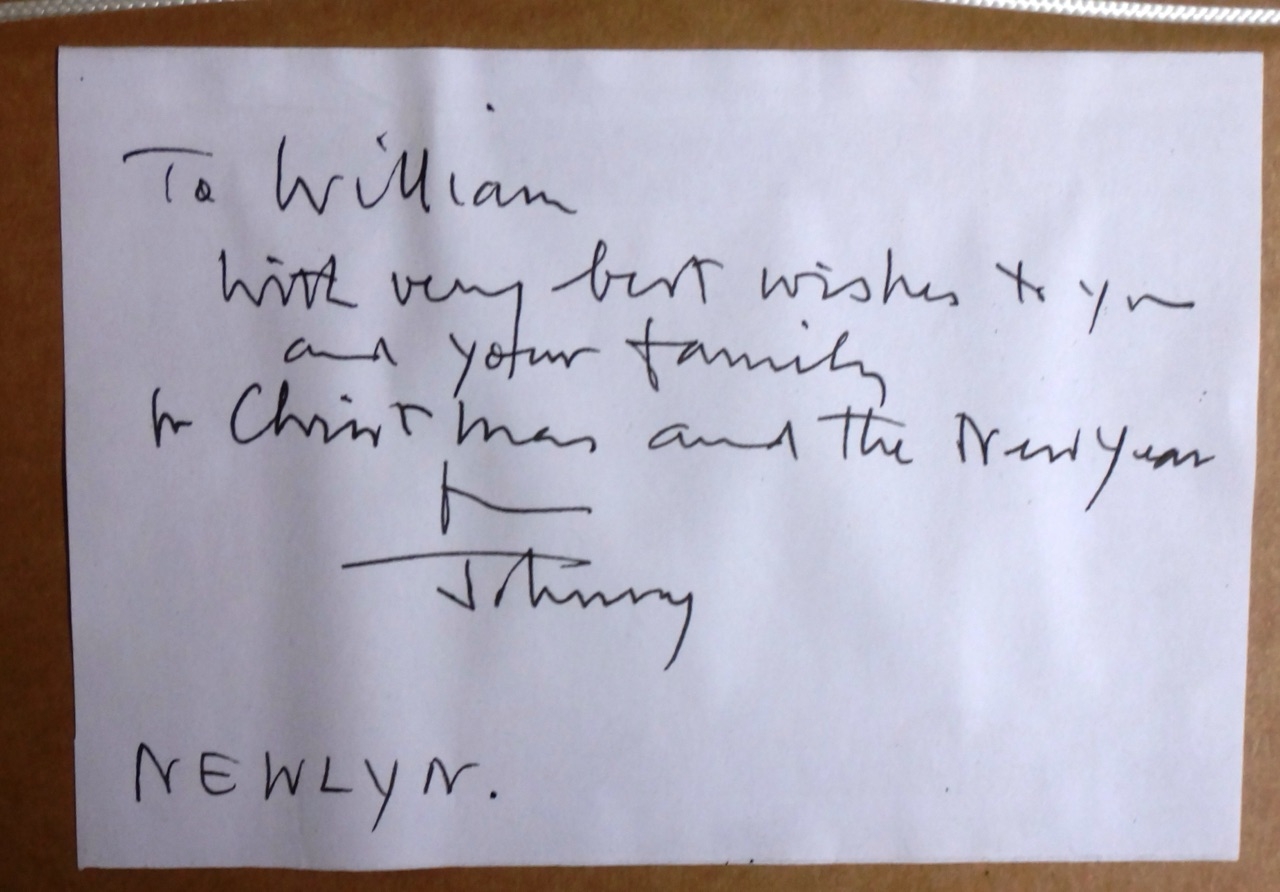 To William
with very best wishes to you
and your family
for Christmas and the New Year
from
Johnny
NEWLYN.